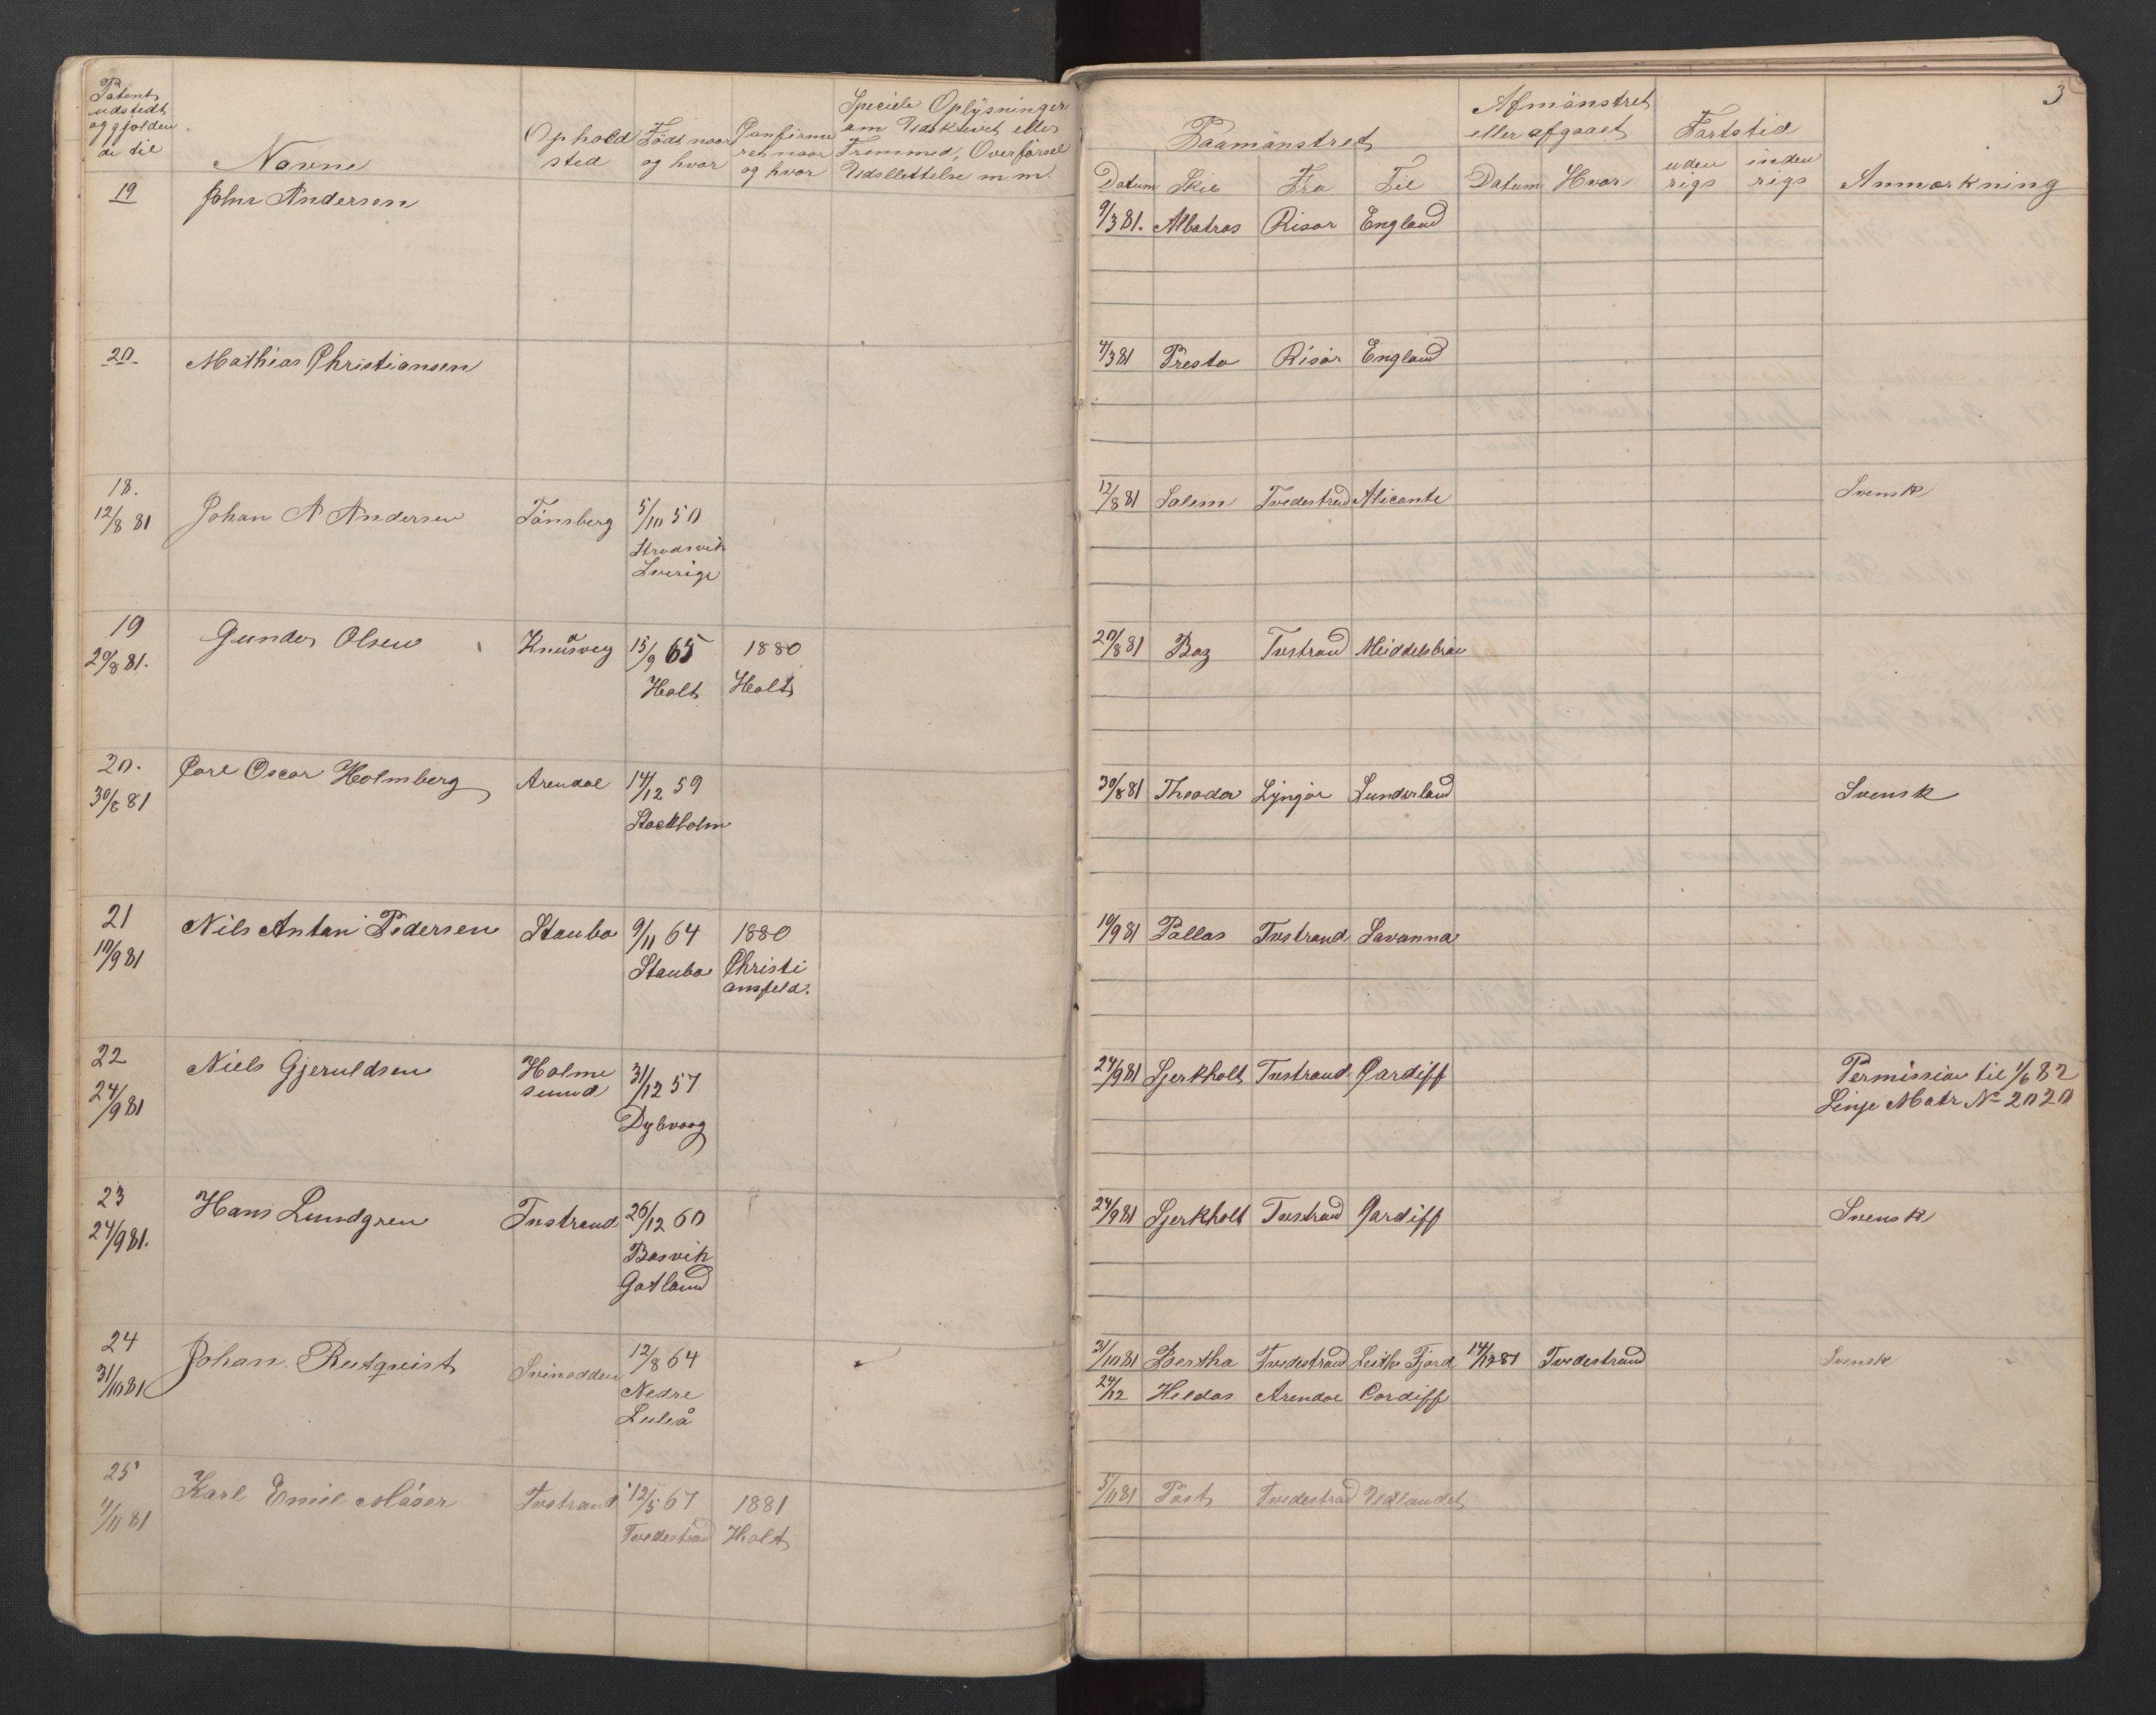 Patent
udstedt
og gjælden
de til
Navne
Ophold
sted
Födt naar
og hvor
Confirme
ret naar
og hvor
Speciele Oplysninger
om Udskrevet eller
Frammed, Overförsel
Udsllettelse m m.
3
Paamönstret
Afmönstret
eller afgaaet
Fartstid
Datum Skib Fra Til Datum Hvor uden
rigs inden
rigs Anmærkning
19 John Andersen
9/3 81. Albatros Risør England
20. Mathias Christiansen
4/3 81 Presto Risör England
18.
12/8 81 Johan A Andersen Tönsberg 5/10 50
Sverige
12/8 81 Salem Tvedestrand Alicante Svensk
19
20/8 81. Gunder Olsen Knusveg 15/9 65 1880
Holt Holt
20/8 81 Boz Tvstrand Middelsbro
20.
30/8 81 Carl Oscar Holmberg Arendal 14/12 59
Stockholm
30/8 81 Theodor Lyngör Sunderland Svensk
21
10/9 81 Nils Anton Pedersen Staubo 9/11 64 1880
Staubo Christi
ansfeld.
10/9 81 Pallas Tvstrand Savanna
22
24/9 81 Niels Gjeruldsen Holme
sund 31/12 57
Dybvaag
24/9 81 Gjerkholt Tvstrand Cardiff Permission til 1/6 82
Linje Matr № 2020
23
24/9 81. Hans Lundgren Tvstrand 26/12 60
Basvik
Gotland
24/9 81 Gjerkholt Tvstrand Cardiff Svensk
24
31/10 81 Johan Rutquist Svinodden 12/8 64
Nedre
Luleå
31/10 81 Bertha Tvedestrand Leith Fjord 14/12 81 Tvedestrand Svensk
24/12 Hildas Arendal Cardiff
25
4/11 81 Karl Emil Möser Tvstrand 12/5 67 1881
Tvedestrand Holt
5/11 81 Post Tvedestrand Udlandet